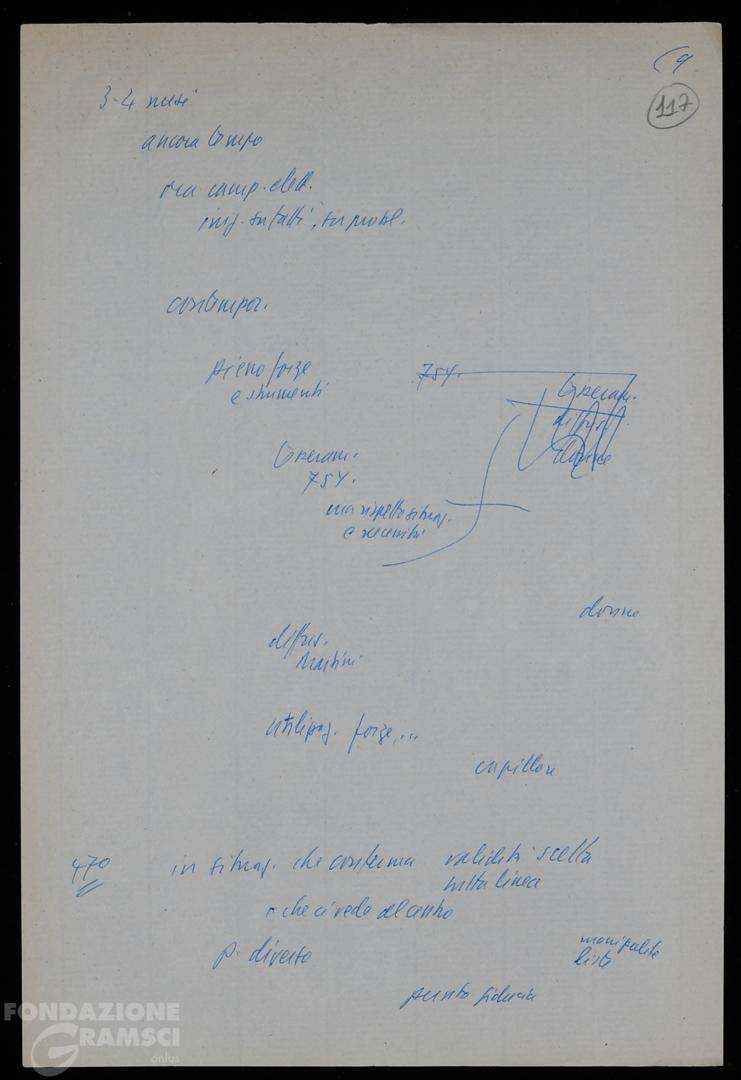 (9
117
3-4 mesi
ancora tempo
ma camp. elett.
iniz. su fatti, su probl.
contempor.
pieno forze
e strumenti
754.
Tesseram.
diffus.
Tesseram.
754.
ma rispetto situaz.
e necessità
donne
diffus.
Martini
utilizzaz. forze,...
capillare
470
in situaz. che conferma validità scelta
nostra linea
e che ci vede al centro
p. diverso
municipalità
liste
punto fiducia
FONDAZIONE
GRAMSCI
onlus